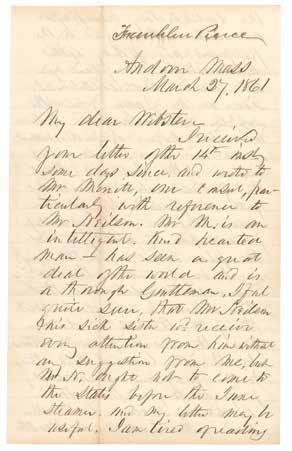 Franklin Pierce
Andover Mass
March 27, 1861
My dear Webster
I received
your letter of the 14th inst
some days since, and wrote to
Mr. Merritt, our consul, par-
ticularly with reference to
Mr. Neilson. Mr M. is an
intelligent, kind hearted
man – has seen a great
deal of the world and is
a thorough Gentleman. I feel
quite sure, that Mr. Neilson
& his sick sister will receive
every attention from him without
any suggestion from me, but
Mr. N. ought not to come to
the States before the June
Steamer. and my letter may be
useful. I am tired of reading